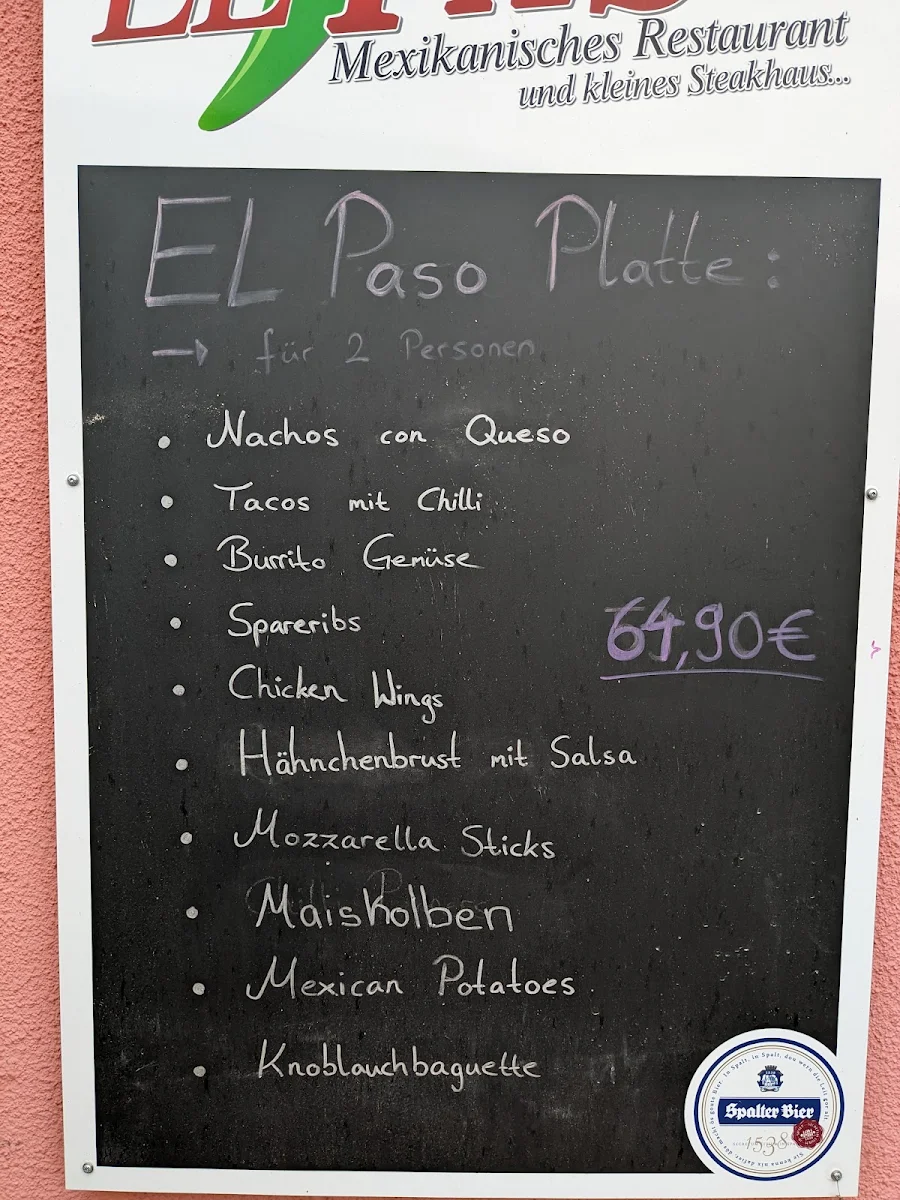 Mexikanisches Restaurant
und kleines Steakhaus...
EL Paso Platte:
→ für 2 Personen
• Nachos con Queso
• Tacos mit Chilli
• Burrito Gemüse
• Spareribs
64,90€
• Chicken Wings
• Hähnchenbrust mit Salsa
• Mozzarella Sticks
• Maiskolben
• Mexican Potatoes
• Knoblauchbaguette
Spalter Bier
1538